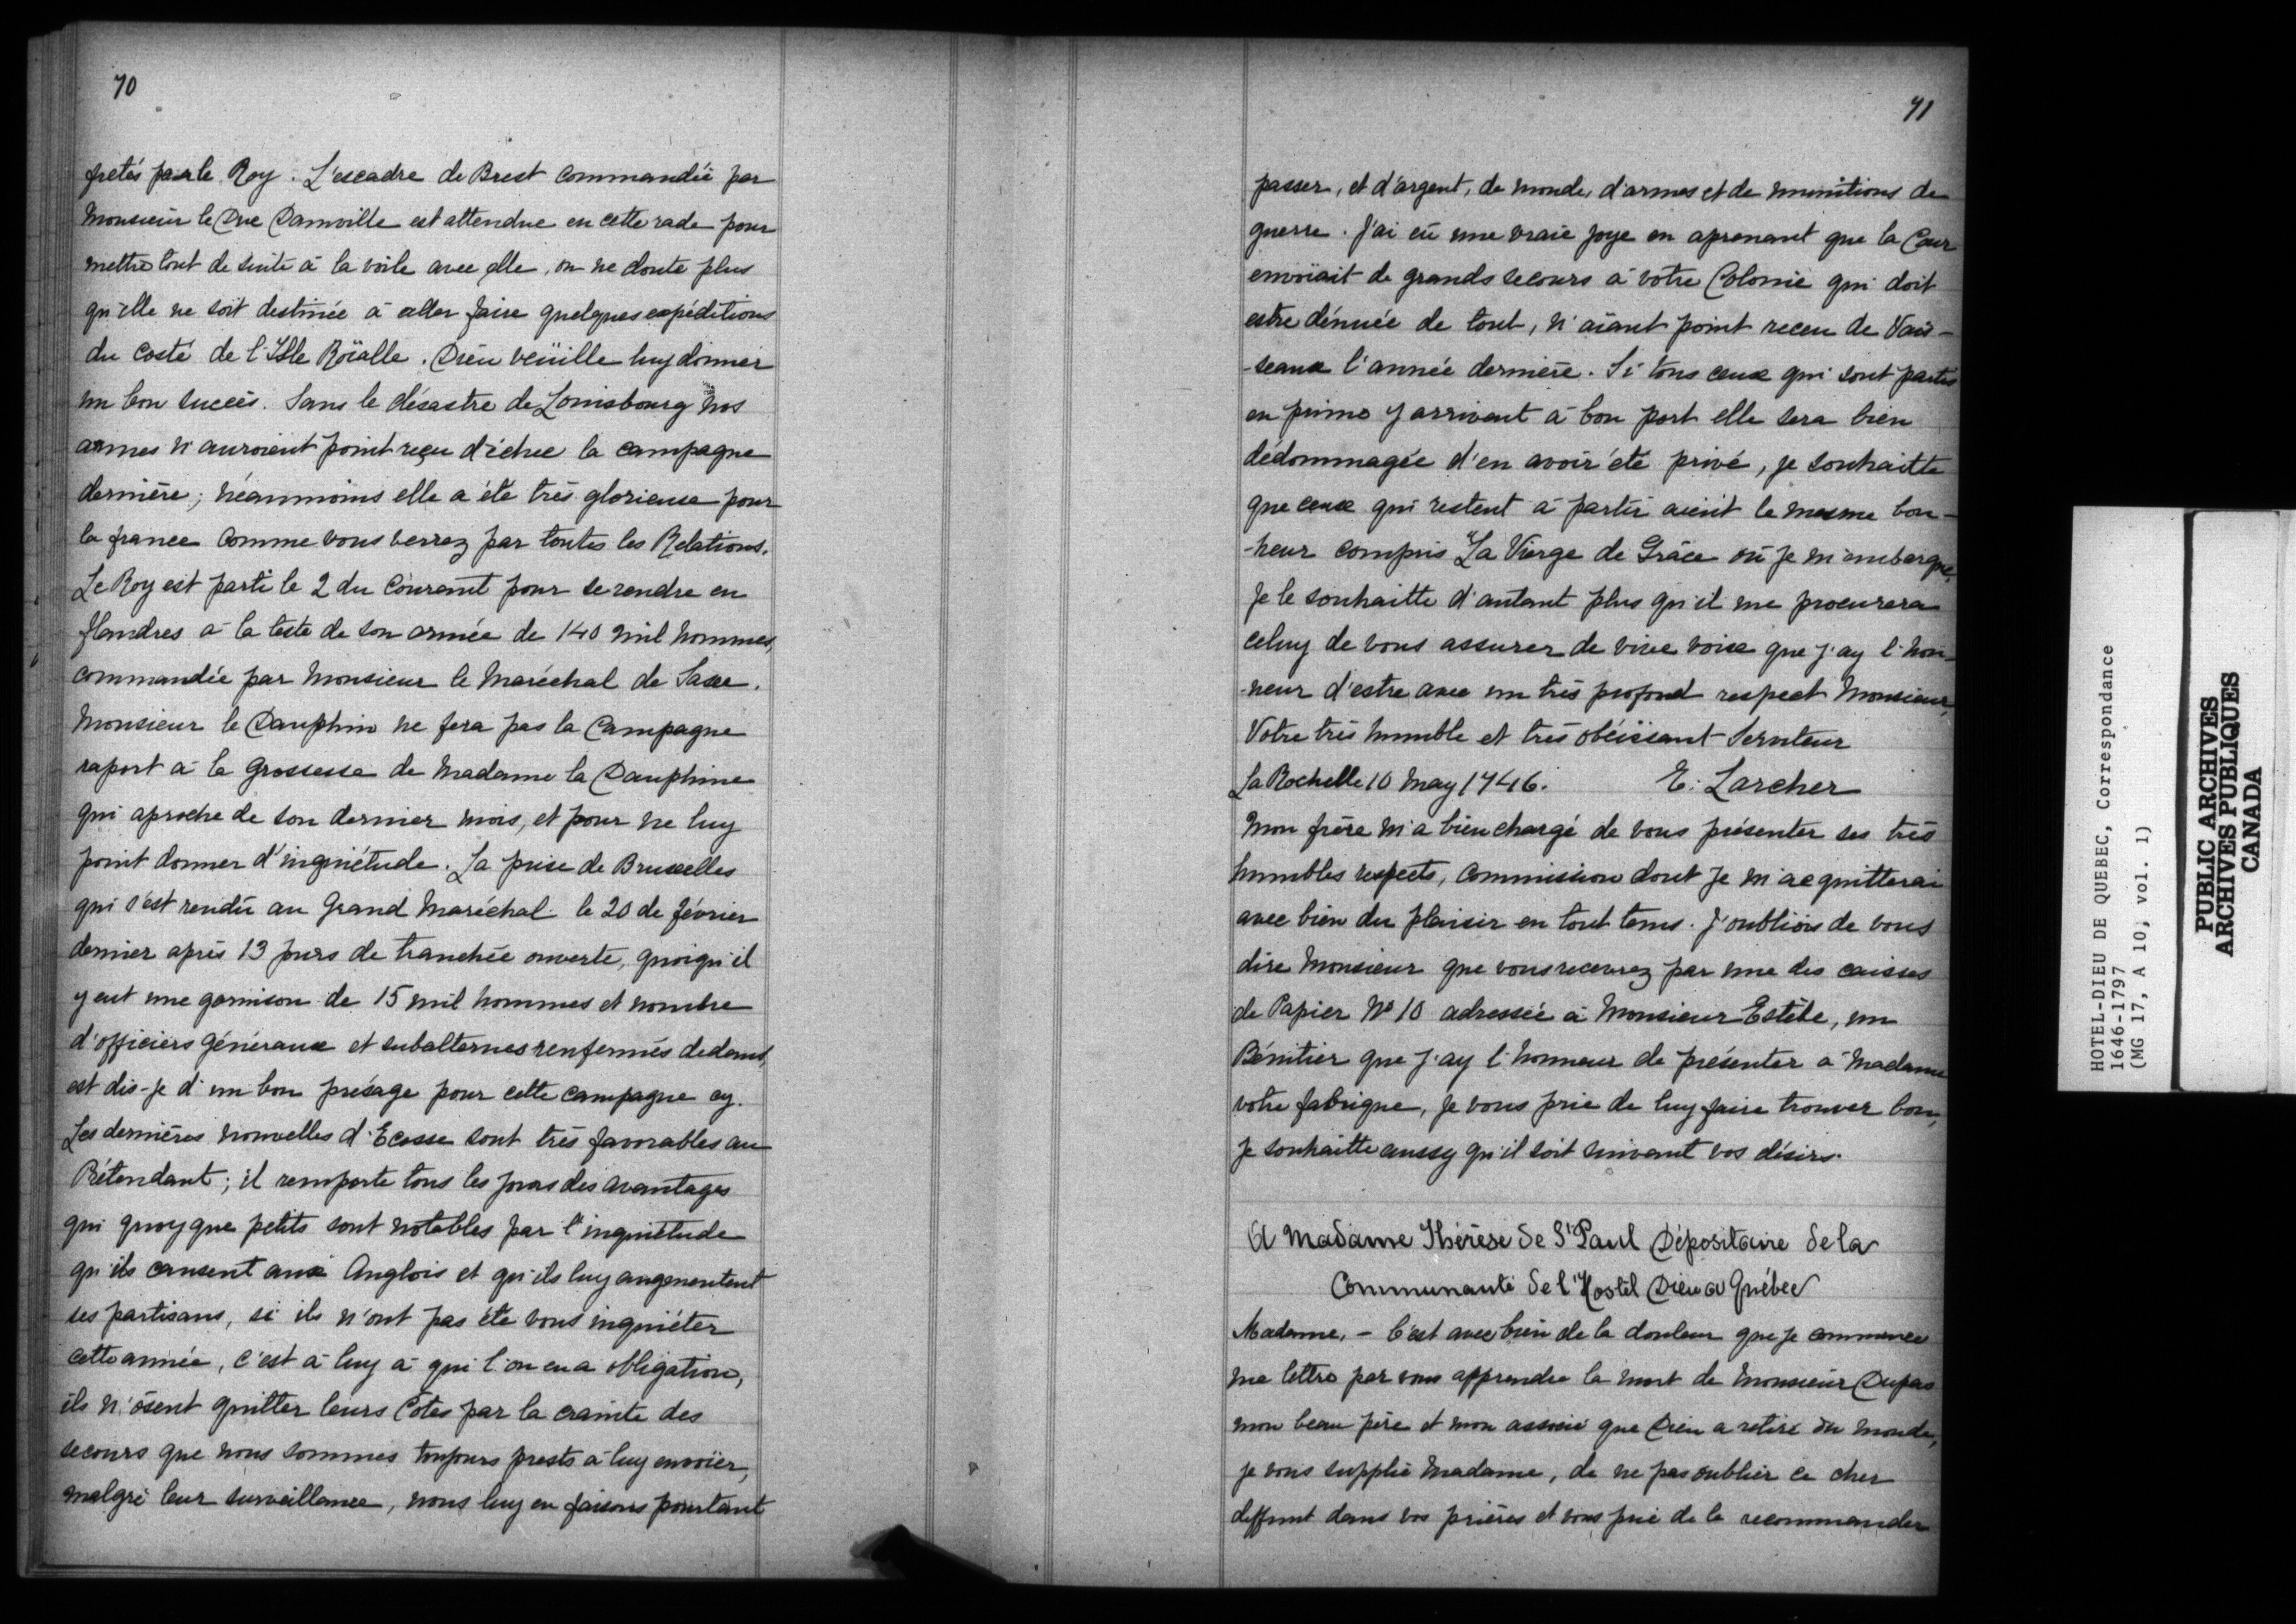 70
fretés par le Roy. L'escadre de Brest commandée par
Monsieur le Duc Danville est attendue en cette rade pour
mettre tout de suite à la voile avec elle, on ne doute plus
qu'elle ne soit destinée à aller faire quelques expéditions
du costé de l'Isle Roïalle. Dieu veüille luy donner
un bon succès. Sans le désastre de Louisbourg nos
armes n'auroient point reçu d'échec la campagne
dernière; néanmoins elle a été très glorieuse pour
la france comme vous verrez par toutes les Relations.
Le Roy est parti le 2 du Courant pour se rendre en
flandres à la teste de son armée de 140 mil hommes,
commandée par Monsieur le Maréchal de Saxe.
Monsieur le Dauphin ne fera pas la Campagne
raport à la grossesse de Madame la Dauphine
qui aproche de son dernier mois, et pour ne luy
point donner d'inquiétude. La prise de Bruxelles
qui s'est rendu au Grand Maréchal le 20 de février
dernier après 13 jours de tranchée ouverte, quoiqu'il
y eut une garnison de 15 mil hommes et nombre
d'officiers généraux et subalternes renfermés dedans,
est dis-je d'un bon présage pour cette campagne cy.
Les dernières nouvelles d'Ecosse sont très favorables au
Prétendant; il remporte tous les jours des avantages
qui quoyque petits sont notables par l'inquiétude
qu'ils causent aux Anglois et qu'ils luy augmentent
ses partisans, si ils n'ont pas été vous inquiéter
cette année, c'est à luy à qui l'on en a obligation,
ils n'ôsent quitter leurs Côtes par la crainte des
secours que nous sommes toujours prests à luy envoïer,
malgré leur surveillance, nous luy en faisons pourtant
71
passer, et d'argent, de monde, d'armes et de munitions de
guerre. J'ai eü une vraie joye en aprenant que la Cour
envoïait de grands secours à votre Colonie qui doit
estre dénuée de tout, n'aïant point receu de Vais-
-seaux l'année dernière. Si tous ceux qui sont partis
en primo y arrivent à bon port elle sera bien
dédommagée d'en avoir été privé, je souhaitte
que ceux qui restent à partir aient le mesme bon-
-heur compris "La Vierge de Grâce où je m'embarque,
Je le souhaitte d'autant plus qu'il me procurera
celuy de vous assurer de vive voix que j'ay l'hon-
-neur d'estre avec un très profond respect Monsieur,
Votre très humble et très obéissant Serviteur
La Rochelle 10 May 1746. E. Larcher
Mon frère m'a bien chargé de vous présenter ses très
humbles respects, Commission dont Je m'acquitterai
avec bien du plaisir en tout tems. J'oubliois de vous
dire Monsieur que vous recevrez par une des caisses
de Papier No 10 adressée à Monsieur Estèbe, un
Bénitier que j'ay l'honneur de présenter à Madame
votre fabrique, je vous prie de luy faire trouver bon,
Je souhaitte aussy qu'il soit suivant vos désirs.
A Madame Thérèse de St Paul Dépositaire de la
Communauté de l'Hostel Dieu à Québec
Madame, - C'est avec bien de la douleur que je commence
ma lettre par vous apprendre la mort de Monsieur Dupas
mon beau père et mon associé que Dieu a retiré du monde,
je vous supplie Madame, de ne pas oublier ce cher
deffunt dans vos prières et vous prie de le recommander
HOTEL-DIEU DE QUEBEC, Correspondance
1646-1797
(MG 17, A 10, vol. 1)
PUBLIC ARCHIVES
ARCHIVES PUBLIQUES
CANADA